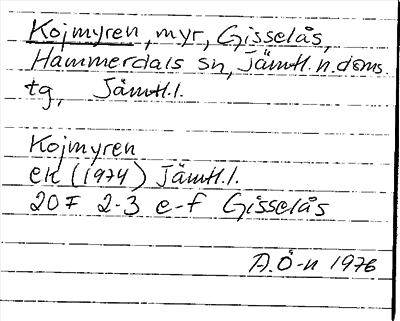 Kojmyren, myr, Gisselås,
Hammerdals sn, Jämtl. n. doms.
tg, Jämtl. l.
Kojmyren
ek (1974) Jämtl. l.
20F 2-3 e-f Gisselås
A. Ö-n 1976